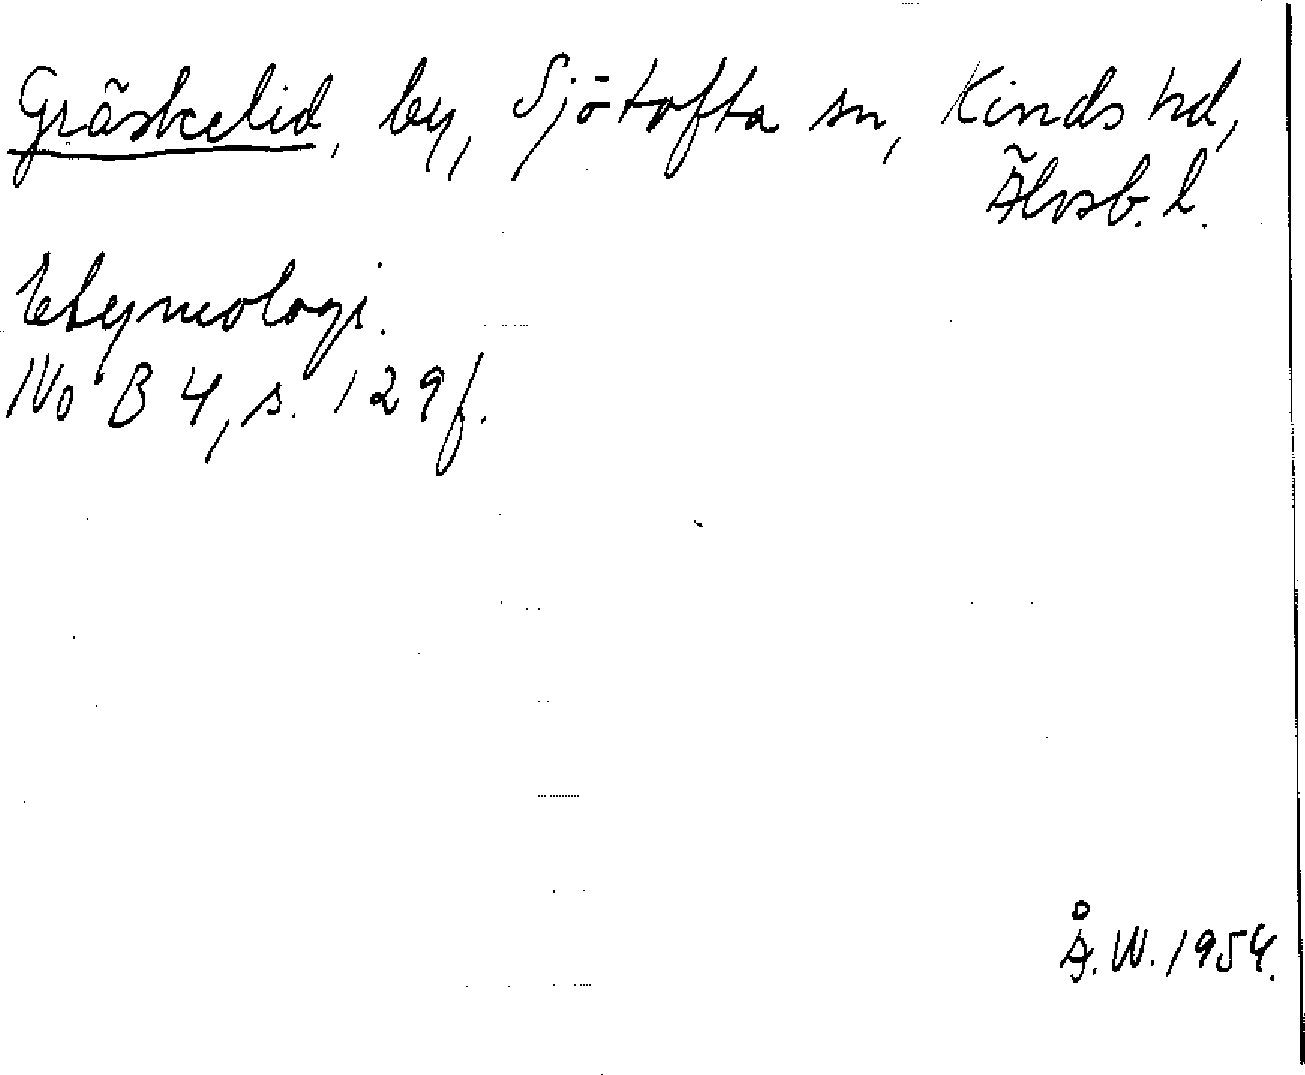 Gräskelid, by, Sjötofta sn, Kinds hd,
Älvsb. l.
Etymologi.
No B 4, s. 129 f.
Å. W. 1954.